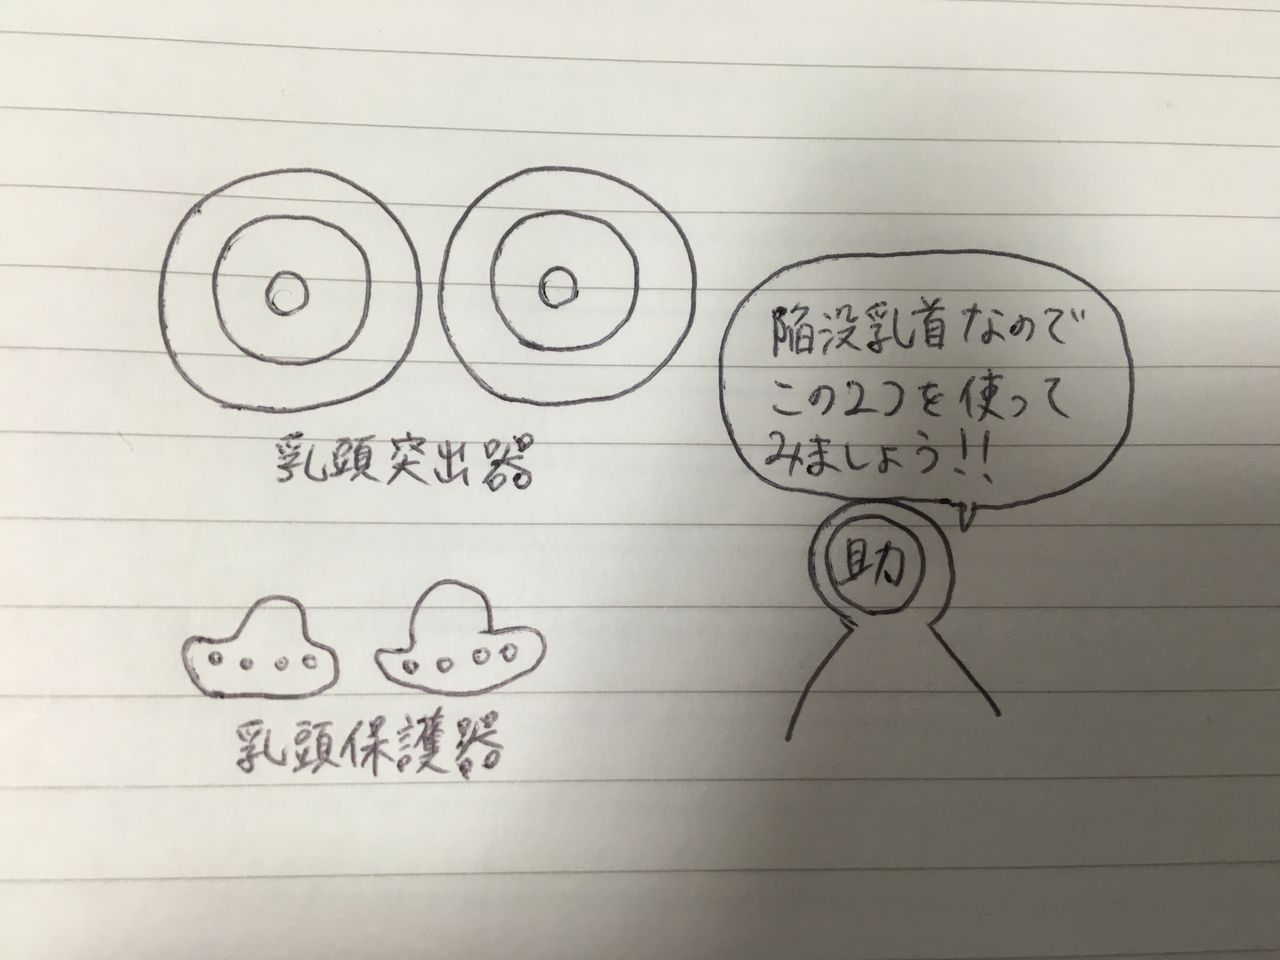 陥没乳首なので
この2つを使って
みましょう!!
乳頭突出器
助
乳頭保護器